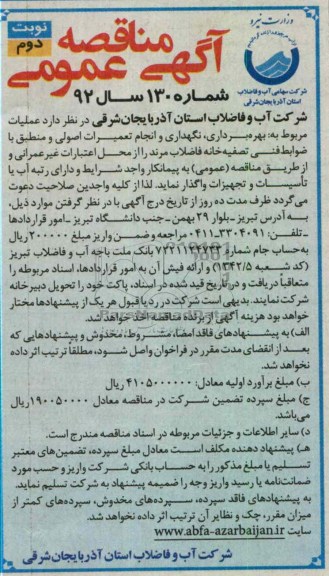 وزارت نیرو
شرکت سهامی آب و فاضلاب
استان آذربایجان شرقی
نوبت
دوم
آگهی مناقصه
عمومی
شماره ۱۳۰ سال ۹۲
شرکت آب و فاضلاب استان آذربایجان شرقی در نظر دارد عملیات
مربوط به: بهره‌برداری، نگهداری و انجام تعمیرات اصولی و منطبق با
ضوابط فنی تصفیه‌خانه فاضلاب مرند را از محل اعتبارات غیرعمرانی و
از طریق مناقصه (عمومی) به پیمانکار واجد شرایط و دارای رتبه آب یا
تأسیسات و تجهیزات واگذار نماید. لذا از کلیه واجدین صلاحیت دعوت
می‌گردد ظرف مدت ده روز از تاریخ درج آگهی با در نظر گرفتن موارد ذیل
به آدرس تبریز ـ بلوار ۲۹ بهمن ـ جنب دانشگاه تبریز ـ امور قراردادها
ـ تلفن: ۳۳۰۴۰۹۱-۰۴۱۱ مراجعه وضمن واریز مبلغ ۲۰۰۰۰۰ ریال
به حساب جام شماره بانک ملت باجه آب و فاضلاب تبریز
(کد شعبه ۱۳۴۲/۵) و ارائه فیش آن به امور قراردادها، اسناد مربوطه را
متعاقباً دریافت و در تاریخ قید شده در اسناد، پاکت خود را تحویل دبیرخانه
شرکت نمایند. بدیهی است شرکت در رد یا قبول هر یک از پیشنهادها مختار
خواهد بود هزینه آگهی از برنده مناقصه اخذ خواهد شد.
الف) به پیشنهادهای فاقد امضا، مشروط، مخدوش و پیشنهادهایی که
بعد از انقضای مدت مقرر در فراخوان واصل شود، مطلقاً ترتیب اثر داده
نخواهد شد.
ب) مبلغ برآورد اولیه معادل: ۴۱۰۵۰۰۰۰۰۰ ریال
ج) مبلغ سپرده تضمین شرکت در مناقصه معادل ۱۹۰۰۵۰۰۰۰ ریال
می‌باشد.
د) سایر اطلاعات و جزئیات مربوطه در اسناد مناقصه مندرج است.
هـ) پیشنهاد دهنده مکلف است معادل مبلغ سپرده، تضمین‌های معتبر
تسلیم یا مبلغ مذکور را به حساب بانکی شرکت واریز و حسب مورد
ضمانت‌نامه یا رسید واریز وجه را ضمیمه پیشنهاد به شرکت تسلیم نماید.
به پیشنهادهای فاقد سپرده، سپرده‌های مخدوش، سپرده‌های کمتر از
میزان مقرر، چک و نظایر آن ترتیب اثر داده نخواهد شد.
سایت www.abfa-azarbaijan.ir
شرکت آب و فاضلاب استان آذربایجان شرقی